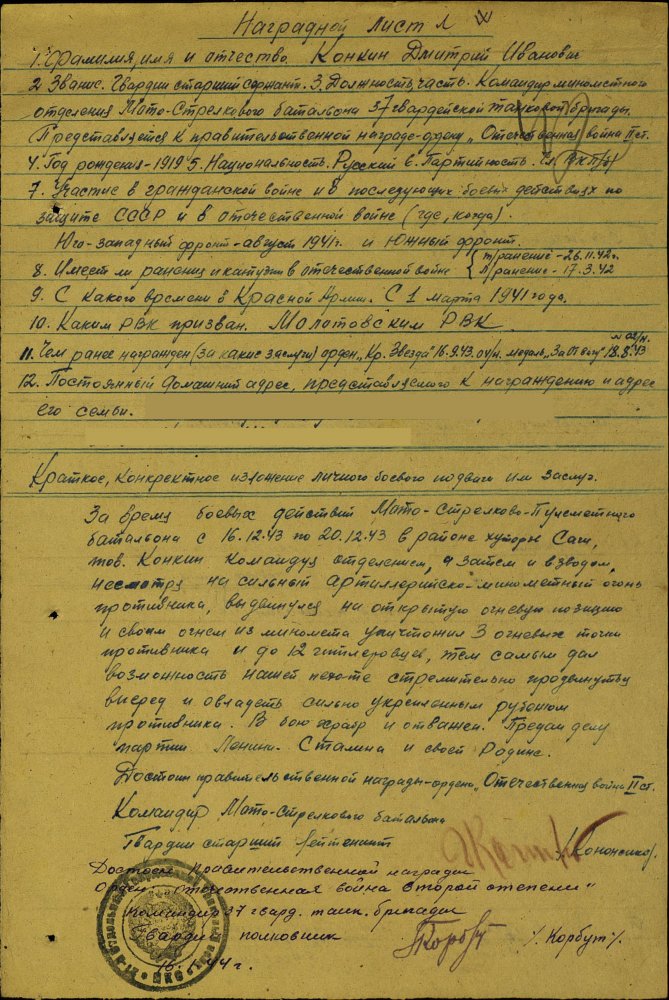 Наградной лист
1. Фамилия, имя и отчество Конкин Дмитрий Иванович
2 Звание. Гвардии старший сержант. 3. Должность, часть. Командир минометного
отделения Мото-Стрелкового батальона 37 гвардейской танковой бригады.
Представляется к правительственной награде-ордену „Отечественная война II ст.
4. Год рождения-1919 5. Национальность. Русский 6. Партийность. чл. ВКП/б/
7. Участие в гражданской войне и в последующих боев. действиях по
защите СССР и в отечественной войне (где, когда).
Юго-западный фронт-август 1941г. и Южный фронт.
8. Имеет ли ранения и контузии в отечественной войне { т/ранение-26.11.42г.
л/ранение-17.3.42
9. С какого времени в Красной Армии. С 1 марта 1941 года.
10. Каким РВК призван. Молотовским РВК.
11. Чем ранее награжден (за какие заслуги) орден „Кр. Звезда" 16.9.43 медаль „За Отвагу" 18.8.43
12. Постоянный домашний адрес, представляемого к награждению и адрес
его семьи.
Краткое, конкретное изложение личного боевого подвига или заслуг.
За время боевых действий Мото-Стрелково-Пулеметного
батальона с 16.12.43 по 20.12.43 в районе хутора
тов. Конкин командуя отделением, а затем и взводом,
несмотря на сильный артиллерийско-минометный огонь
противника, выдвинулся на открытую огневую позицию
и своим огнем из миномета уничтожил 3 огневых точки
противника и до 12 гитлеровцев, тем самым дал
возможность нашей пехоте стремительно продвинуться
вперед и овладеть сильно укрепленным рубежом
противника. В бою храбр и отважен. Предан делу
партии Ленина-Сталина и своей Родине.
Достоин правительственной награды-ордена „Отечественная война II ст.
Командир Мото-Стрелкового батальона
Гвардии старший лейтенант
Достоин правительственной награды
Орден „Отечественная война второй степени"
Командир 37 гвард. танк. бригады
Гвардии полковник /Корбут/.
44 г.